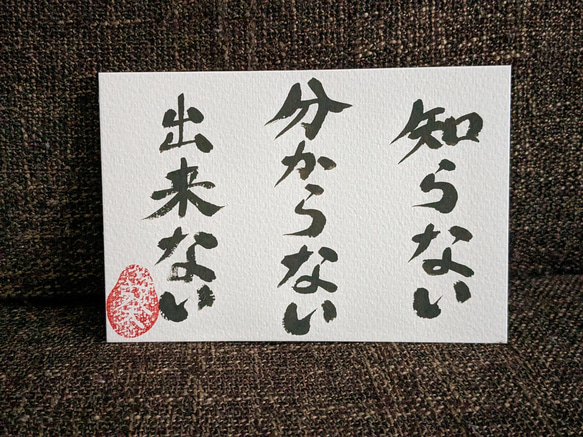 知らない
分からない
出来ない